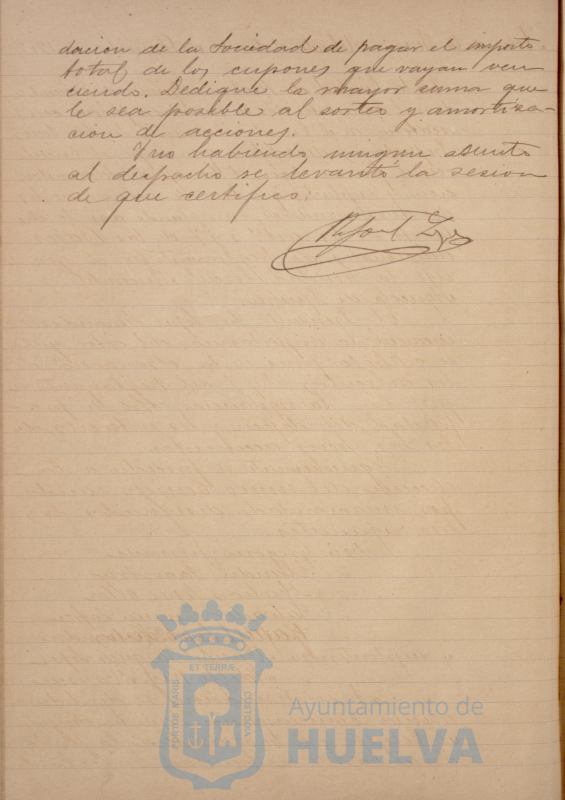 dacion de la Sociedad de pagar el importe
total de los cupones que vayan ven
ciendo. Dedique la mayor suma que
le sea posible al sorteo y amortiza-
cion de acciones.
Y no habiendo ningun asunto
al despacho se levantó la sesion
de que certifico:
Rafael
ET TERRÆ
PORTUS MARIS
CUSTODIA
Ayuntamiento de
HUELVA